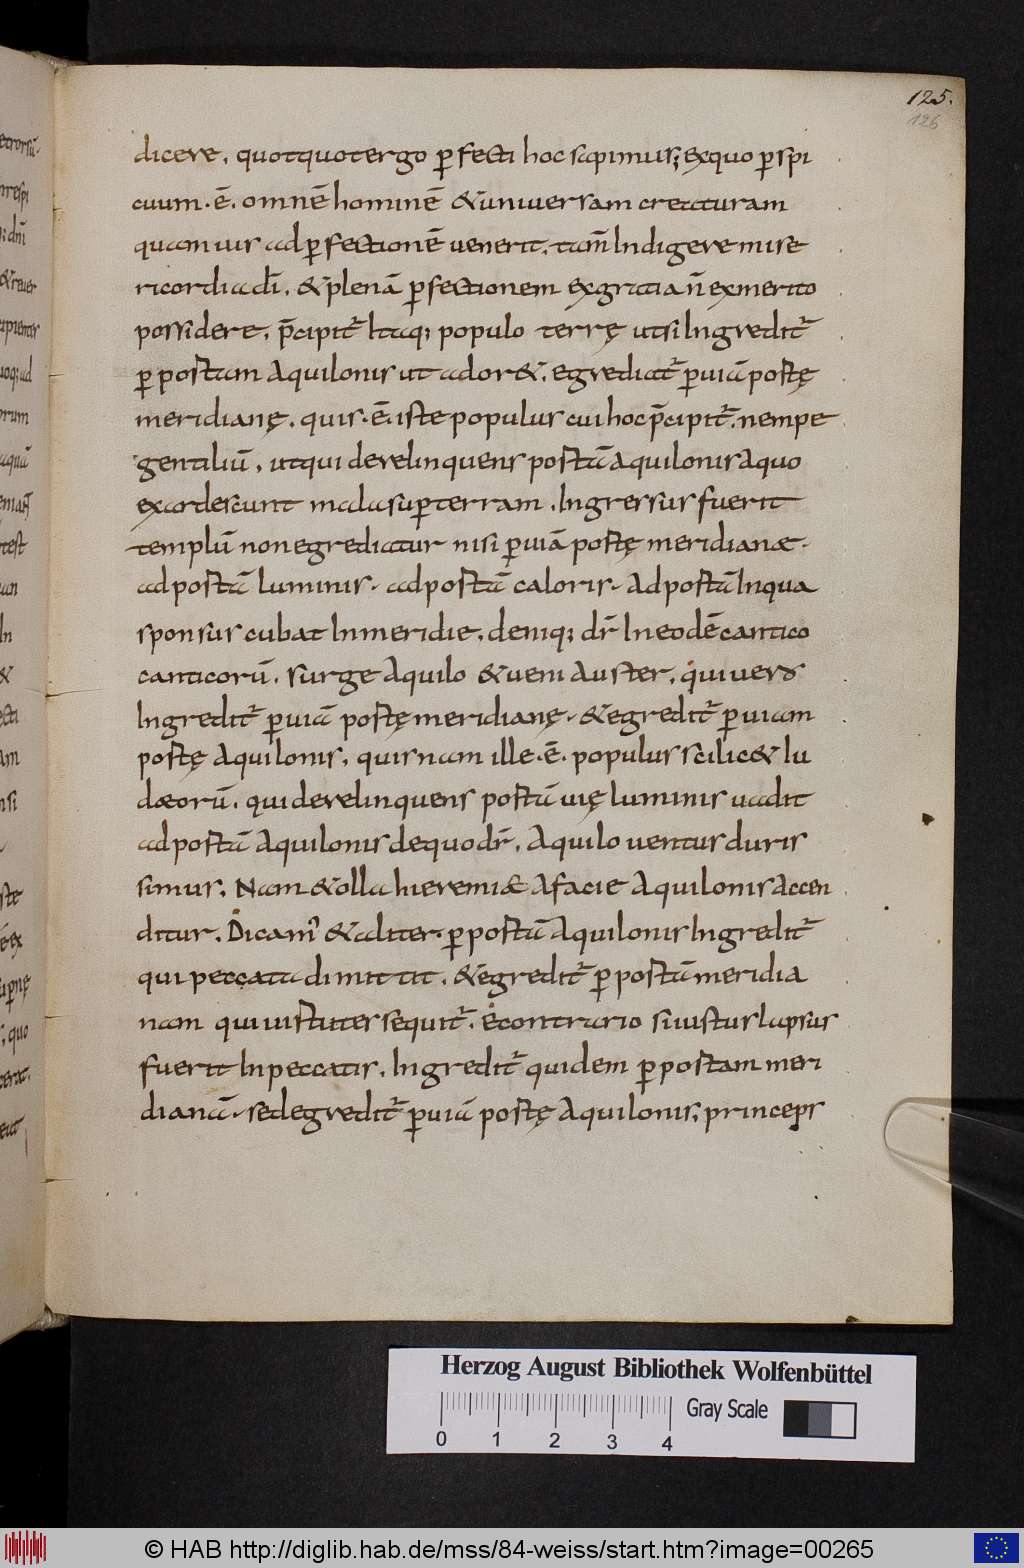 125.
126
dicere. quotquot ergo ꝑfecti hoc sapimus; exquo ꝑspi
cuum. ē. omnē hominē & uniuersam creaturam
quamuis ad ꝑfectionē uenerit. tam̄ Indigere mise
ricordia dī. & plenā ꝑfectionem exgratia n̄ exmerito
possidere. p̄cipit̄ Itaq; populo terrę utsi Ingredit̄
ꝑ portam Aquilonis ut ador&. egrediat̄ ꝑ uiā portę
meridianę. quis. ē. iste populus cui hoc p̄cipit̄. nempe
gentiliū. ut qui derelinquens portā aquilonis Aquo
exardescunt mala suꝑ terram. Ingressus fuerit
templū non egrediatur nisi ꝑ uiā portę meridianæ.
ad portā luminis. ad portā caloris. Ad portā Inqua
sponsus cubat Inmeridie. deniq; dr̄ In eodē cantico
canticorū. surge Aquilo & ueni Auster. qui uero
Ingredit̄ ꝑ uiā portę meridianę. & egredit̄ ꝑ uiam
portę Aquilonis. quis nam ille. ē. populus scilic& Iu
dæorū. qui derelinquens portā uię luminis uadit
ad portā Aquilonis dequo dr̄. Aquilo uentus duris
simus. Nam & olla hieremiæ Afacie Aquilonis Accen
ditur. Dicam' & aliter. ꝑ portā Aquilonis Ingredit̄
qui peccata dimittit. & egredit̄ ꝑ portā meridia
nam qui iustiter sequit̄. Econtrario si iustus lapsus
fuerit In peccatis. Ingredit̄ quidem ꝑ portam meri
dianā. sed egredit̄ ꝑ uiā portę Aquilonis; princeps
Herzog August Bibliothek Wolfenbüttel
Gray Scale
0 1 2 3 4
© HAB http://diglib.hab.de/mss/84-weiss/start.htm?image=00265